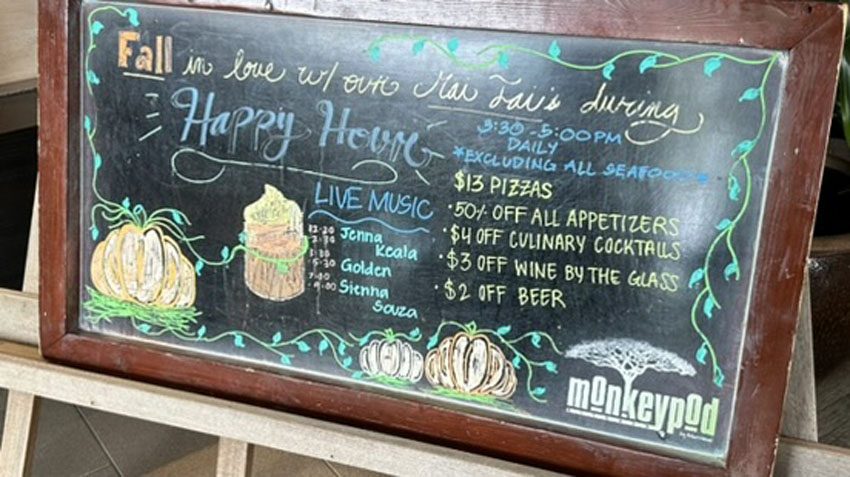 Fall in love w/ our Mai Tai's during
Happy Hour
3:30 - 5:00PM
DAILY
*EXCLUDING ALL SEAFOOD*
LIVE MUSIC
Jenna
Keala
Golden
Sienna
Souza
$13 PIZZAS
• 50% OFF ALL APPETIZERS
• $4 OFF CULINARY COCKTAILS
• $3 OFF WINE BY THE GLASS
• $2 OFF BEER
monkeypod